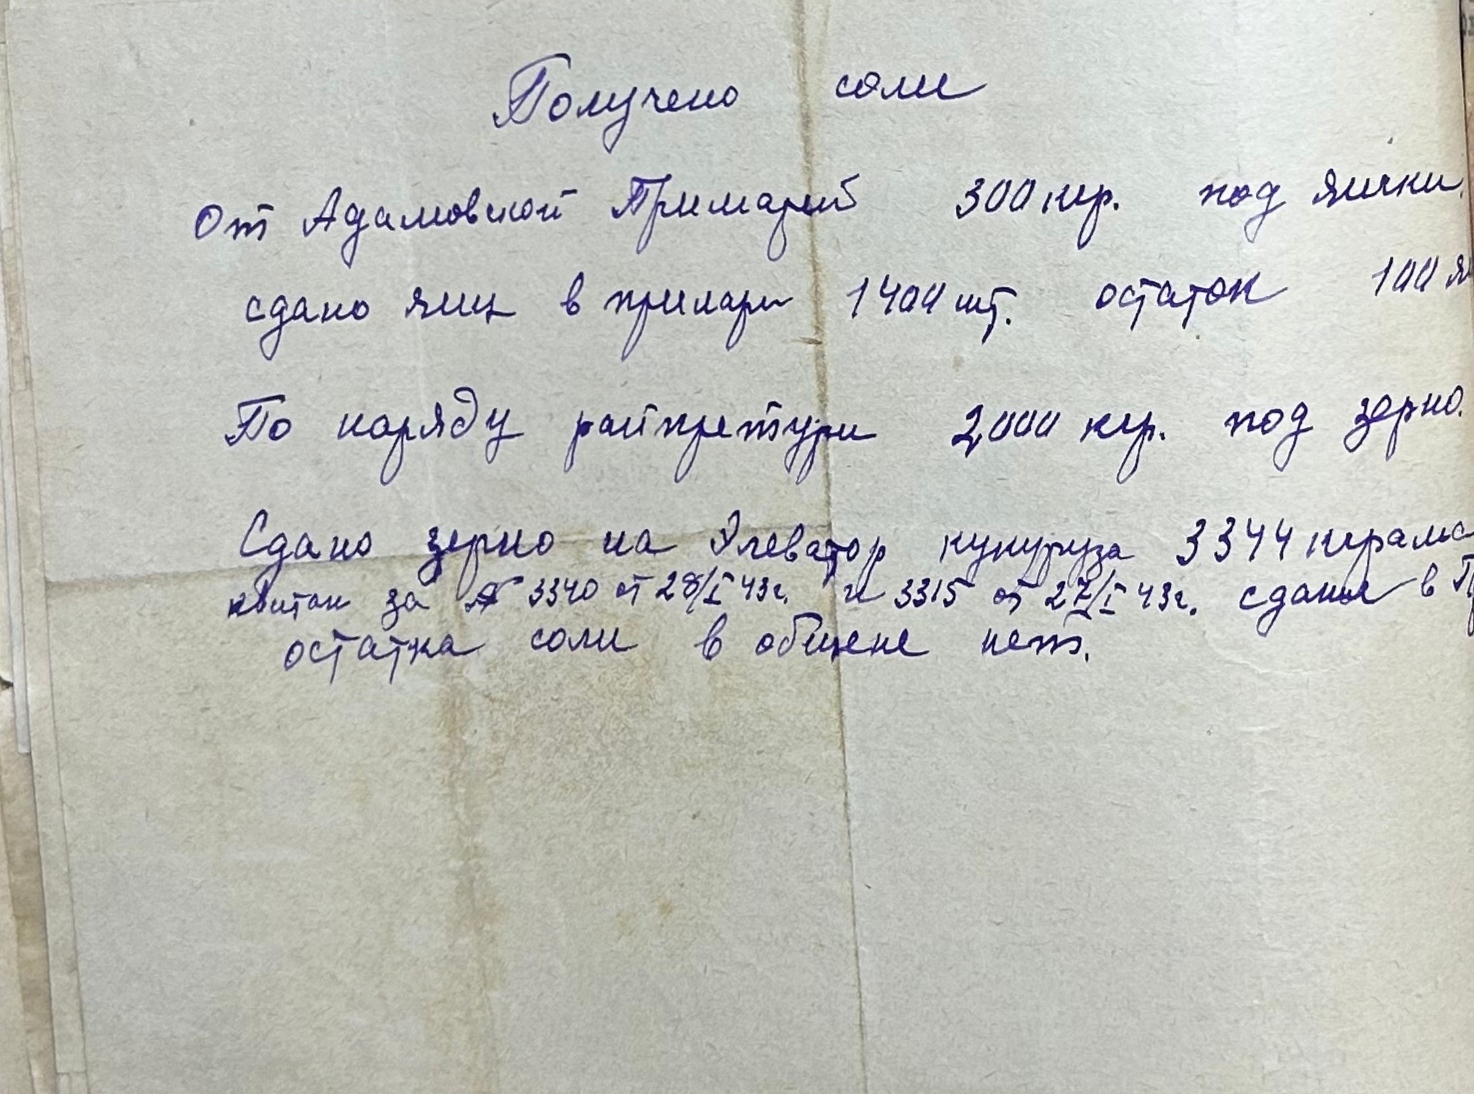 Получено соли
От Адамовской Примарий 300 кгр. под яички.
сдано яиц в примари 1400 шт. остаток 100 я
По наряду райпретури 2,000 кгр. под зерно.
Сдано зерно на Элеватор кукуруза 3344 кграма
квитан за № 3340 от 28/I 43г. и 3315 от 27/I 43г. сданы в П
остатка соли в обмене нет.